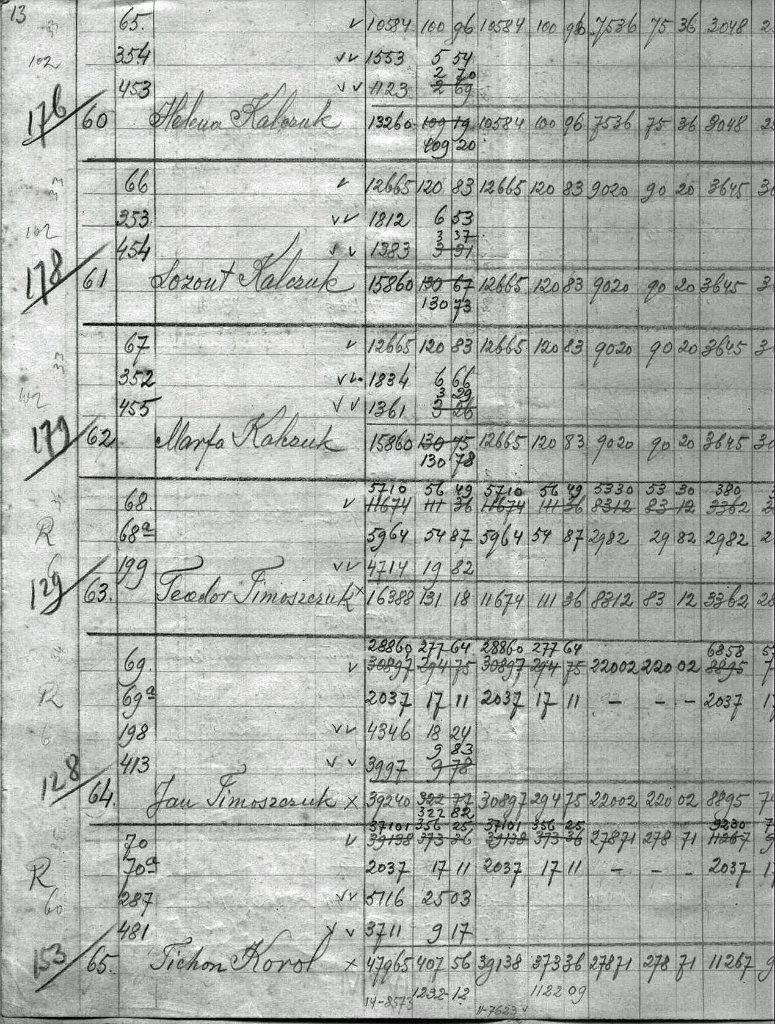 13
65. v 10584 100 96 10584 100 96 7536 75 36 3048
102 354 vv 1553 5 54
2 70
453 vv 1123 2 69
176 60 Helena Kalczuk 13260 109 19 10584 100 96 7536 75 36 3048
109 20
66 v 12665 120 83 12665 120 83 9020 90 20 3645 30
102 353 vv 1812 6 53
3 37
454 vv 1383 3 31
178 61 Lozout Kalczuk 15860 130 67 12665 120 83 9020 90 20 3645
130 73
67 v 12665 120 83 12665 120 83 9020 90 20 3645
102 352 vv 1834 6 66
3 29
455 vv 1361 3 26
179 62 Marfa Kalczuk 15860 130 75 12665 120 83 9020 90 20 3645 30
130 78
5710 56 49 5710 56 49 5330 53 30 380
68. v 11674 111 36 11674 111 36 8312 83 12 3362
R 68a 5964 54 87 5964 54 87 2982 29 82 2982 2
199 vv 4714 19 82
129 63. Teodor Timoszczuk x 16388 131 18 11674 111 36 8312 83 12 3362 28
28860 277 64 28860 277 64 6858
69. v 30897 294 75 30897 294 75 22002 220 02 8895 7
R 69a 2037 17 11 2037 17 11 - - - 2037 17
6 198 vv 4346 18 24
9 83
413 vv 3997 9 78
128 64. Jan Timoszczuk x 39240 322 77 30897 294 75 22002 220 02 8895 7
322 82
37101 356 25 37101 356 25 9230
70 v 39138 373 36 39138 373 36 27871 278 71 11267 9
R 70a 2037 17 11 2037 17 11 - - - 2037 17
60 287 vv 5116 25 03
481 vv 3711 9 17
153 65. Tichon Korol x 47965 407 56 39138 373 36 27871 278 71 11267 9
14-8573 1232-12 11-7623 v 1122 09